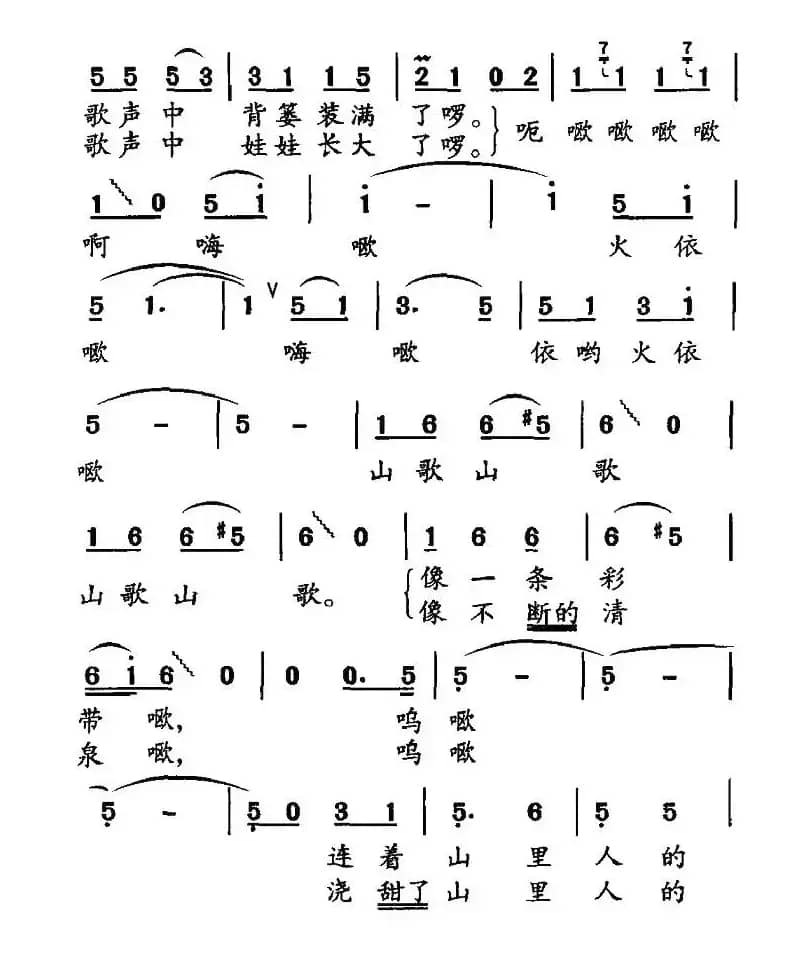 5 5 5 3 | 3 1 1 5 | 2 1 0 2 | 1 7 1 1 7 1 |
歌声中 背篓装满 了啰。
歌声中 娃娃长大 了啰。 呃 噷噷噷噷
1 0 5 i | i - | i 5 i |
啊 嗨 噷 火依
5 1. | 1 ∨ 5 1 | 3. 5 | 5 1 3 i |
噷 嗨 噷 依哟火依
5 - | 5 - | 1 6 6 #5 | 6 0 |
噷 山歌山 歌
1 6 6 #5 | 6 0 | 1 6 6 | 6 #5 |
山歌山 歌。 像一条 彩
像不断的 清
6 i 6 0 | 0 0. 5 | 5 - | 5 - |
带 噷, 呜 噷
泉 噷, 呜 噷
5 - | 5 0 3 1 | 5. 6 | 5 5 |
连着 山 里 人 的
浇甜了 山 里 人 的